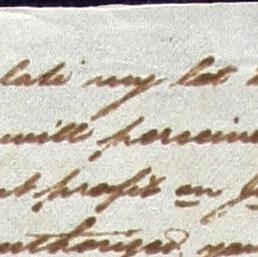 late my let
will perceive
t profit on
authorized you